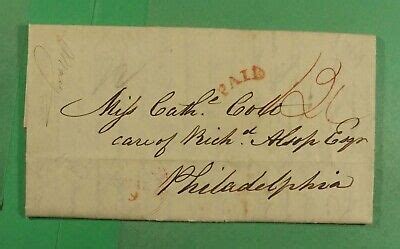 PAID
Miss Cath.e Colt
care of Rich.d Alsop Esqr
Philadelphia